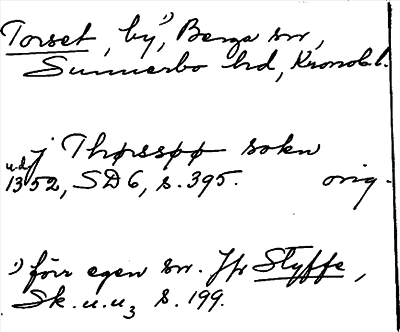 Torset, by,¹⁾ Berga sn,
Sunnerbo hd, Kronob. l.
j Thørssøø sokn
udj 1352, SD 6, s. 395. orig.
¹⁾ förr egen sn. Jfr Styffe,
Sk. u. u₃ s. 199.